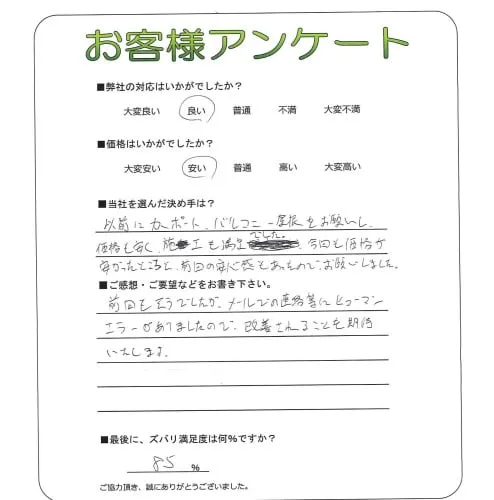 お客様アンケート
■弊社の対応はいかがでしたか？
大変良い 良い 普通 不満 大変不満
■価格はいかがでしたか？
大変安い 安い 普通 高い 大変高い
■当社を選んだ決め手は？
以前にカーポート、バルコニー屋根をお願いし、
価格も安く、施工も満足でした。今回も価格が
安かったところと、前回の安心感もあったので、お願いしました。
■ご感想・ご要望などをお書き下さい。
前回もそうでしたが、メールでの連絡等にヒューマン
エラーがありましたので、改善されることを期待
いたします。
■最後に、ズバリ満足度は何%ですか？
85 %
ご協力頂き、誠にありがとうございました。